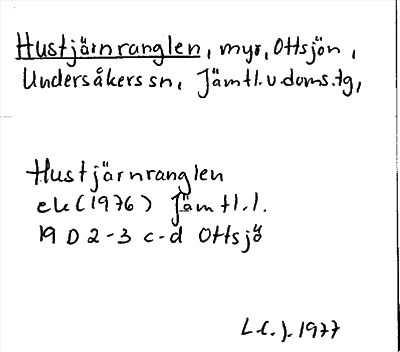 Hustjärnranglen, myr, Ottsjön,
Undersåkers sn, Jämtl.v.doms.tg,
Hustjärnranglen
ek (1976) Jämtl.l.
19 D 2-3 c-d Ottsjö
L.C.J. 1977